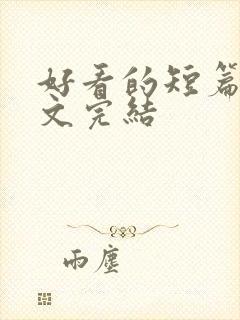 好看的短篇
文完结
雨尘